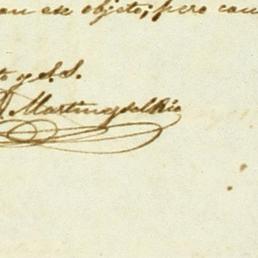 en ese objeto; pero con
to y S.S.
Martinez del Rio